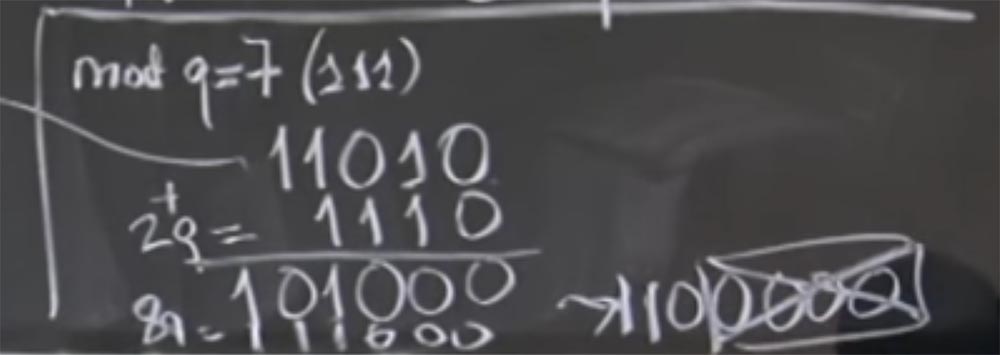 mod q=7 (111)
11010
+
2q= 1110
101000
8q= 111000
→110 0000